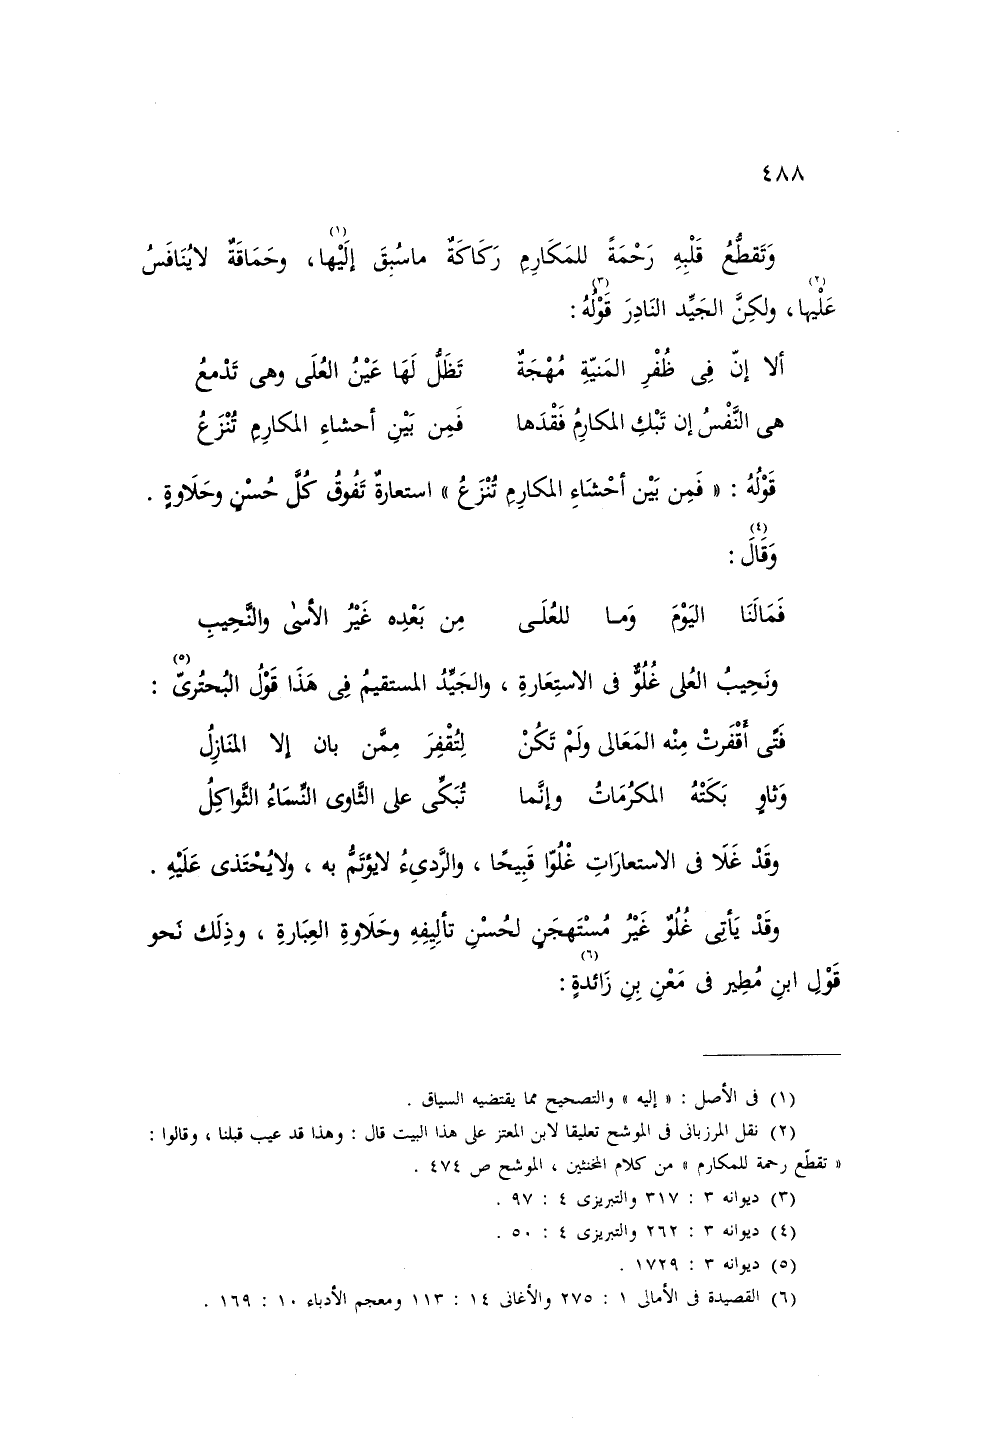 ٤٨٨
وَتَقطُّعُ قَلْبِهِ رَحْمَةً للمَكَارِمِ رَكَاكَةٌ ماسُبِقَ إلَيْها(١)، وحَمَاقَةٌ لايُنَافَسُ
عَلْيها(٢)، ولكِنَّ الجَيِّد النَادِرَ قَوْلُهُ(٣) :
ألا إنّ فِى ظُفْرِ المَنيّةِ مُهْجَةٌ تَظَلُّ لَهَا عَيْنُ العُلَى وهى تَدْمعُ
هى النَّفْسُ إن تَبْكِ المكارِمُ فَقْدَها فَمِن بَيْنِ أحشاءِ المكارِمِ تُنْزَعُ
قَوْلُهُ : « فَمِن بَيْن أحْشَاءِ المكارِمِ تُنْزَعُ » استعارةٌ تَفُوقُ كُلَّ حُسْنٍ وحَلَاوةٍ .
وَقَالَ(٤) :
فَمَالَنَا اليَوْمَ وَمـا للعُلَـى مِن بَعْدِه غَيْرُ الأسٰى والنَّحِيبِ
ونَحِيبُ العُلى غُلُوٌّ فى الاستِعَارةِ ، والجَيِّدُ المستقيمُ فِى هَذَا قَوْلُ البُحتُرىّ(٥) :
فَتًى أقْفَرتْ مِنْه المَعَالى ولَمْ تَكُنْ لِتُقْفِرَ مِمَّن بان إلا المَنَازِلُ
وَثاوٍ بَكَتْهُ المكرُمَاتُ وإنَّما تُبَكِّى على الثَّاوى النِّسَاءُ الثَّواكِلُ
وقَدْ غَلَا فى الاستعارَاتِ غُلُوّا قَبِيحًا ، والرَّدىءُ لايؤتَمُّ به ، ولايُحْتَذى عَلَيْهِ .
وقَدْ يَأتِى غُلُوٌ غَيْرُ مُسْتَهجَنٍ لحُسْنِ تألِيفِهِ وحَلَاوةِ العِبَارةِ ، وذِلَك نَحو
قَوْلِ ابنِ مُطِير فى مَعْنِ بنِ زَائدةٍ(٦) :
(١) فى الأصل : « إليه » والتصحيح مما يقتضيه السياق .
(٢) نقل المرزبانى فى الموشح تعليقا لابن المعتز على هذا البيت قال : وهذا قد عيب قبلنا ، وقالوا :
« تقطّع رحمة للمكارم » من كلام المخنثين ، الموشح ص ٤٧٤ .
(٣) ديوانه ٣ : ٣١٧ والتبريزى ٤ : ٩٧ .
(٤) ديوانه ٣ : ٢٦٢ والتبريزى ٤ : ٥٠ .
(٥) ديوانه ٣ : ١٧٢٩ .
(٦) القصيدة فى الأمالى ١ : ٢٧٥ والأغانى ١٤ : ١١٣ ومعجم الأدباء ١٠ : ١٦٩ .